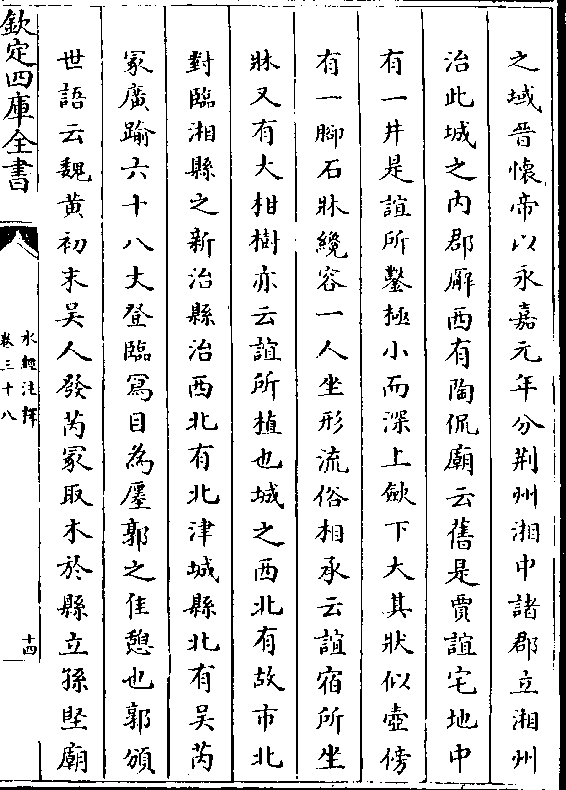 之域晉懷帝以永嘉元年分荆州湘中諸郡立湘州
治此城之内郡廨西有陶侃廟云舊是賈誼宅地中
有一井是誼所鑿極小而深上斂下大其狀似壺傍
有一腳石牀纔容一人坐形流俗相承云誼宿所坐
牀又有大柑樹亦云誼所植也城之西北有故市北
對臨湘縣之新治縣治西北有北津城縣北有吳芮
冢廣踰六十八丈登臨寫目為廛郭之佳憩也郭頒
世語云魏黄初末吳人發芮冢取木於縣立孫堅廟
欽定四庫全書
水經注釋
卷三十八
十四